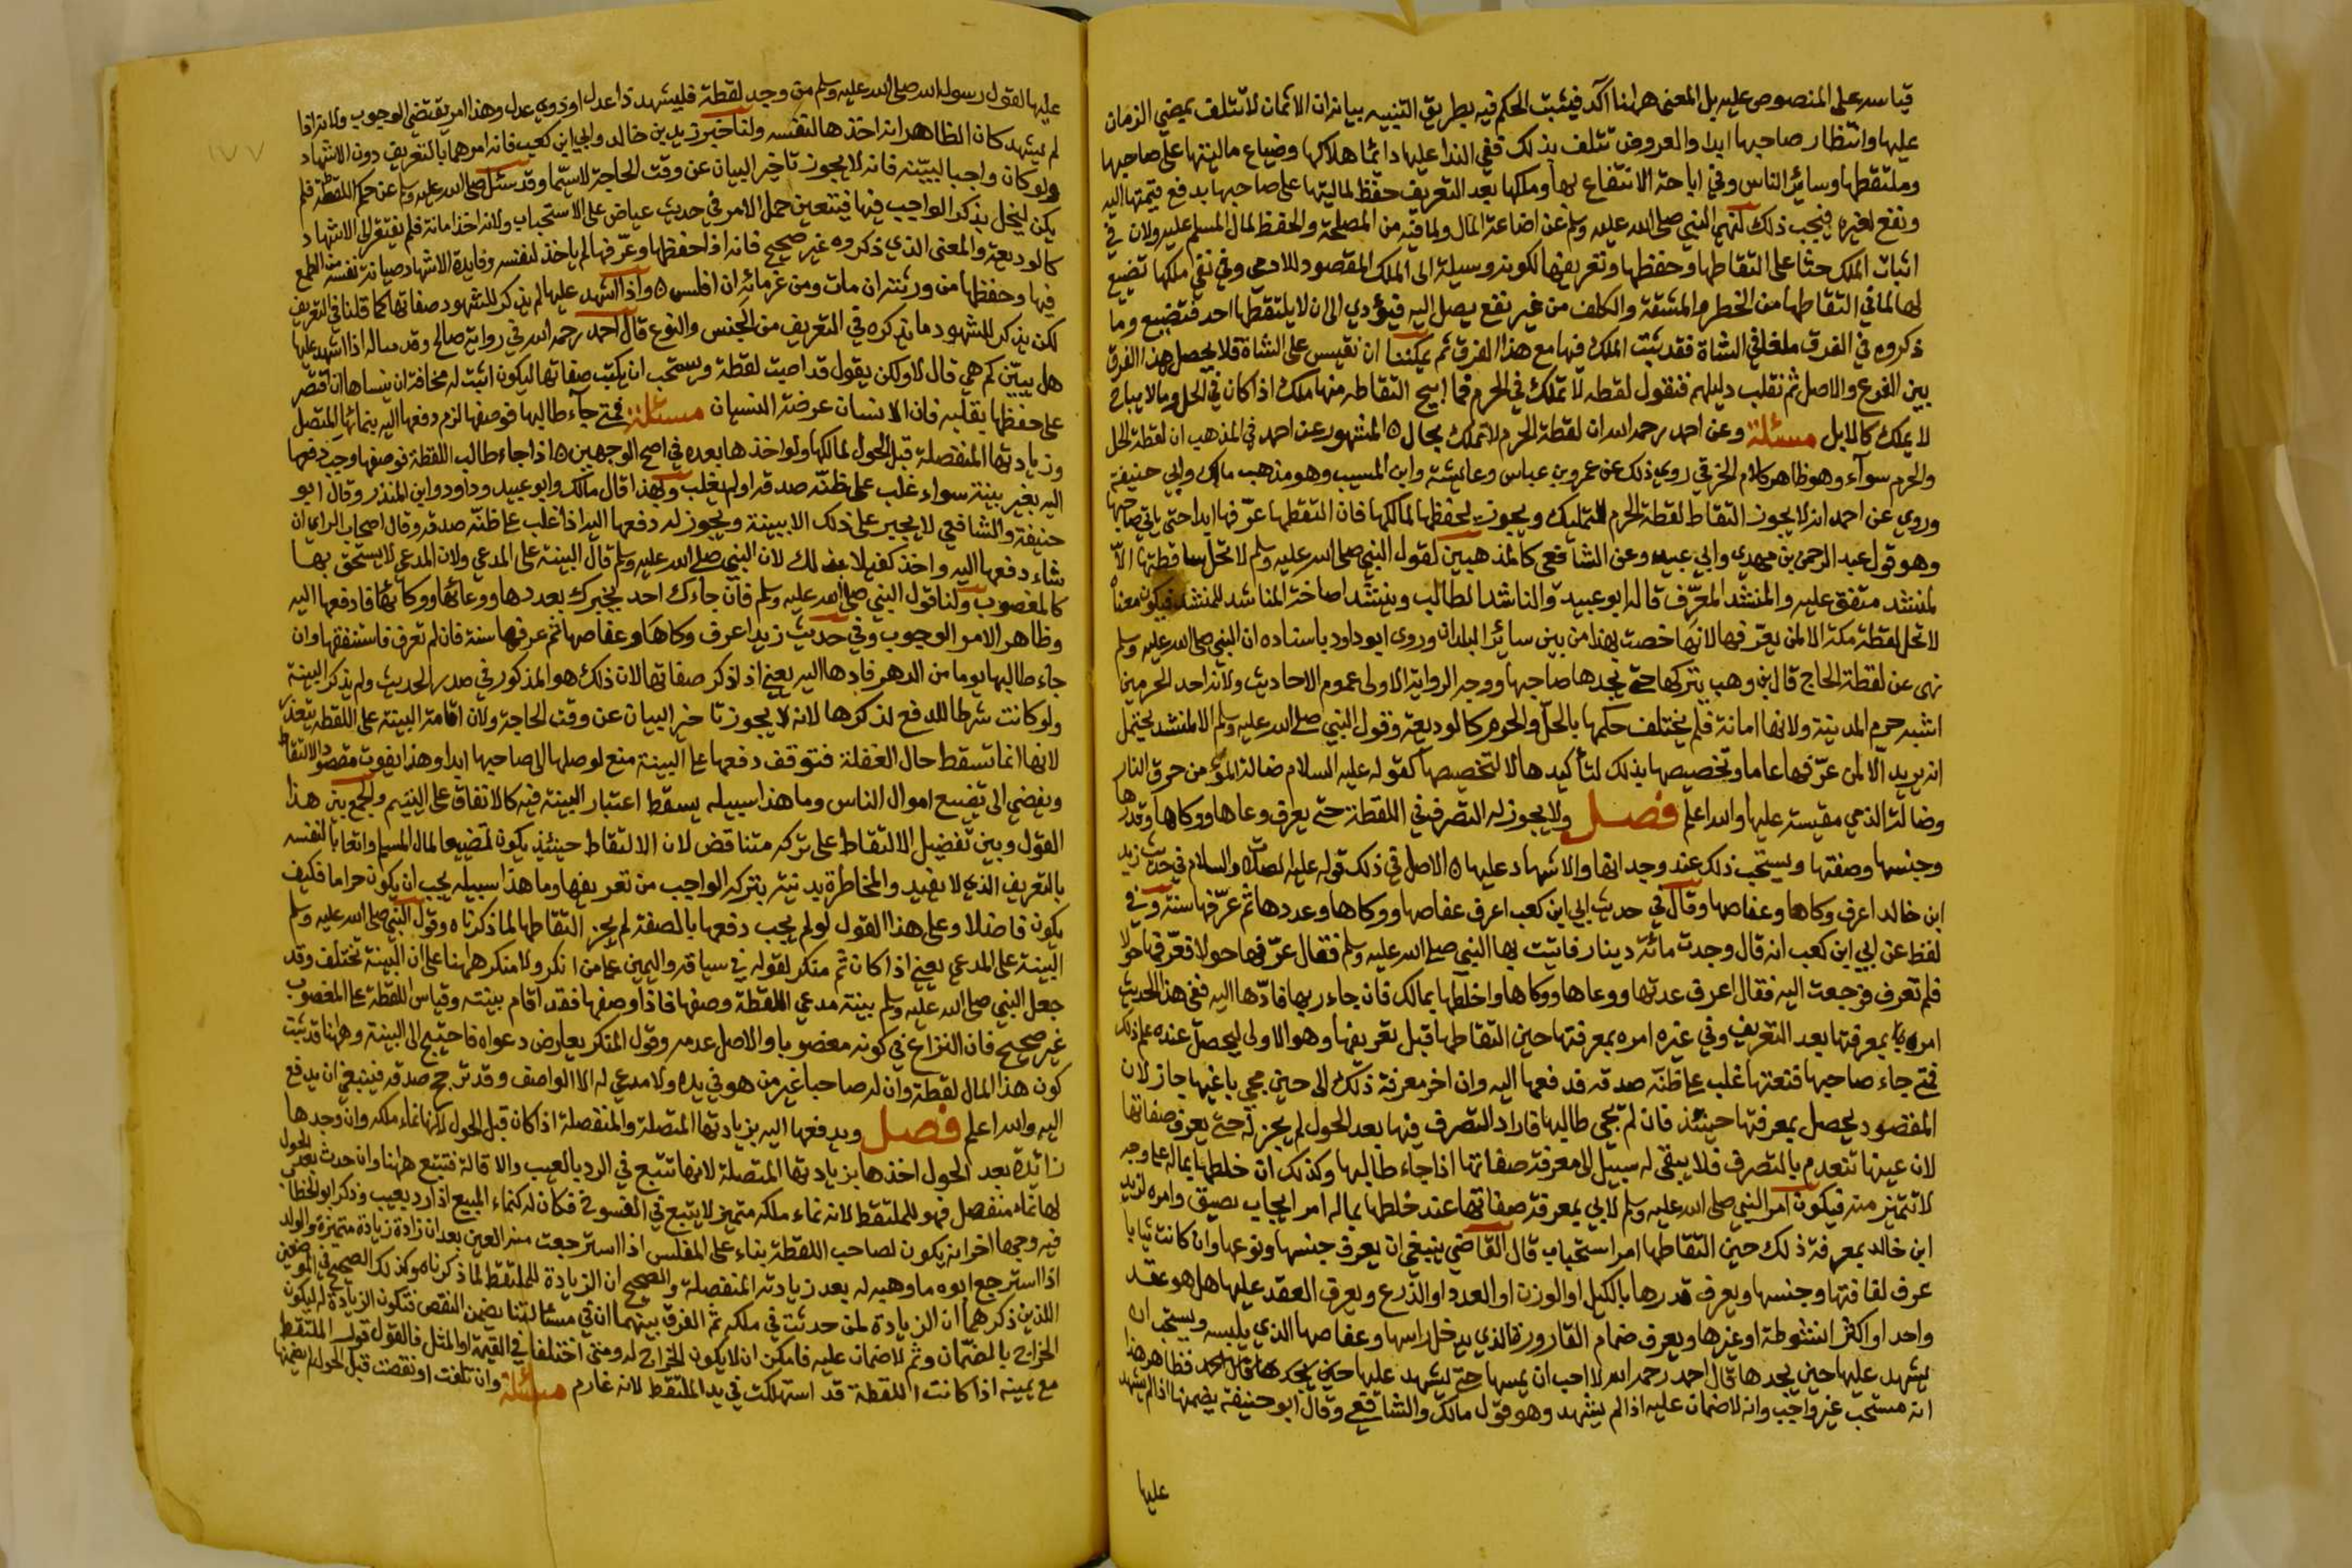 قياسه على المنصوص عليه بل المعنى ههنا آكد فيثبت الحكم فيه بطريق التنبيه بيانه ان الاثمان لا تتلف بمضي الزمان
عليها وانتظار صاحبها ابدا والعروض تتلف بذلك ففي الندا عليها دائما هلاكها وضياع ماليتها على صاحبها
وملتقطها وسائر الناس وفي اباحة الانتفاع بها وملكها بعد التعريف حفظ لماليتها على صاحبها بدفع قيمتها اليه
ونفع لغيره فيجب ذلك لنهي النبي صلى الله عليه وسلم عن اضاعة المال ولما فيه من المصلحة والحفظ لمال المسلم عليه ولان في
اثبات الملك حثا على التقاطها وحفظها وتعريفها لكونه وسيلة الى الملك المقصود للادمي وفي نفي ملكها تضييع
لها لما في التقاطها من الخطر والمشقة والكلف من غير نفع يصل اليه فيؤدي الى ان لا يلتقطها احد فتضيع وما
ذكروه في الفرق ملغا في الشاة فقد ثبت الملك فيها مع هذا الفرق ثم يمكننا ان نقيس على الشاة فلا يحصل هذا الفرق
بين الفرع والاصل ثم نقلب دليلهم فنقول لقطة لا تملك في الحرم فما ابيح التقاطه منها ملك اذا كان في الحل وما لا يباح
لا يملك كالابل مسئلة وعن احمد رحمه الله ان لقطة الحرم لا تملك بحال ه المشهور عن احمد في المذهب ان لقطة الحل
والحرم سوآء وهو ظاهر كلام الخرقي روي ذلك عن عمر وبن عباس وعائشة وابن المسيب وهو مذهب مالك وابي حنيفة
وروي عن احمد انه لا يجوز التقاط لقطة الحرم للتمليك ويجوز لحفظها لمالكها فان التقطها عرّفها ابدا حتى ياتي صاحبها
وهو قول عبد الرحمن بن مهدي وابي عبيد وعن الشافعي كالمذهبين لقول النبي صلى الله عليه وسلم لا تحل ساقطتها الا
لمنشد متفق عليه والمنشد المعرّف قاله ابو عبيد والناشد الطالب وينشد اصاخة الناشد للمنشد فيكون معناه
لا تحل لقطة مكة الا لمن يعرّفها لانها خصت بهذا من بين سائر البلدان وروى ابو داود باسناده ان النبي صلى الله عليه وسلم
نهى عن لقطة الحاج قال بن وهب يتركها حتى يجدها صاحبها ووجه الرواية الاولى عموم الاحاديث ولانه احد الحرمين
اشبه حرم المدينة ولانها امانة فلم يختلف حكمها بالحلّ والحرم كالوديعة وقول النبي صلى الله عليه وسلم الا لمنشد يحتمل
انه يريد الّا لمن عرّفها عاما وتخصيصها بذلك لتأكيدها لا لتخصيصها كقوله عليه السلام ضالة المؤمن حرق النار
وضالة الذمي مقيسة عليها والله اعلم فصل ولا يجوز له التصرف في اللقطة حتى يعرف وعاها ووكاها وقدرها
وجنسها وصفتها ويستحب ذلك عند وجدانها والاشهاد عليها ه الاصل في ذلك قوله عليه الصلاة والسلام في حديث زيد
ابن خالد اعرف وكاها وعفاصها وقال في حديث ابي ابن كعب اعرف عفاصها ووكاها وعددها ثم عرّفها سنة وفي
لفظ عن ابي ابن كعب انه قال وجدت مائة دينار فاتيت بها النبي صلى الله عليه وسلم فقال عرّفها حولا فعرّفتها حولا
فلم تعرف فرجعت اليه فقال اعرف عدتها ووعاها ووكاها واخلطها بمالك فان جاء ربها فادّها اليه ففي هذا الحديث
امره بمعرفتها بعد التعريف وفي غيره امره بمعرفتها حين التقاطها قبل تعريفها وهو الاولى ليحصل عنده علم ذلك
فمتى جاء صاحبها فنعتها غلب على ظنّه صدقه فدفعها اليه وان اخر معرفة ذلك الى حين مجي باغيها جاز لان
المقصود يحصل بمعرفتها حينئذ فان لم يجي طالبها فاراد التصرف فيها بعد الحول لم يجز له حتى يعرف صفاتها
لان عينها تنعدم بالتصرف فلا يبقى له سبيل الى معرفة صفاتها اذا جاء طالبها وكذلك ان خلطها بماله على وجه
لا تتميز منه فيكون امر النبي صلى الله عليه وسلم لابي بمعرفة صفاتها عند خلطها بماله امر ايجاب مضيق وامره لزيد
ابن خالد بمعرفة ذلك حين التقاطها امر استحباب قال القاضي ينبغي ان يعرف جنسها ونوعها وان كانت ثيابا
عرف لفافتها وجنسها ويعرف قدرها بالكيل او الوزن او العدد او الذرع ويعرف العقد عليها هل هو عقد
واحد او اكثر انشوطة او غيرها ويعرف ضمام القارورة الذي يدخل راسها وعفاصها الذي يلبسه ويستحب ان
يشهد عليها حين يجدها قال احمد رحمه الله لا احب ان يمسها حتى يشهد عليها حين يجدها فظاهر هذا
انه مستحب غير واجب وانه لا ضمان عليه اذا لم يشهد وهو قول مالك والشافعي وقال ابو حنيفة يضمنها اذا لم يشهد
عليها
١٧٧
عليها لقول رسول الله صلى الله عليه وسلم من وجد لقطة فليشهد ذا عدل او ذوي عدل وهذا امر يقتضي الوجوب ولانه اذا
لم يشهد كان الظاهر انه اخذها لنفسه ولنا خبر زيد بن خالد وابي ابن كعب فانه امرهما بالتعريف دون الاشهاد
ولو كان واجبا لبيّنه فانه لا يجوز تاخير البيان عن وقت الحاجة لا سيّما وقد سئل صلى الله عليه وسلم عن حكم اللقطة فلم
يكن ليخل بذكر الواجب فيها فيتعين حمل الامر في حديث عياض على الاستحباب ولانه اخذ امانة فلم يفتقر الى الاشهاد
كالوديعة والمعنى الذي ذكروه غير صحيح فانه اذا حفظها وعرّفها لم ياخذ لنفسه وفايدة الاشهاد صيانة نفسه من الطمع
فيها وحفظها من ورثته ان مات ومن غرمائه ان افلس ه واذا اشهد عليها لم يذكر للشهود صفاتها كما قلنا في التعريف
لكن يذكر للشهود ما يذكره في التعريف من الجنس والنوع قال احمد رحمه الله في رواية صالح وقد ساله اذا اشهد عليها
هل يبيّن كم هي قال لا ولكن يقول قد اصبت لقطة ويستحب ان يكتب صفاتها ليكون اثبت له مخافة ان ينساها ان اقتصر
على حفظها بقلبه فان الانسان عرضة النسيان مسئلة فمتى جآء طالبها فوصفها لزم دفعها اليه بنمائها المتصل
وزيادتها المنفصلة قبل الحول لمالكها ولو اخذها بعده في اصح الوجهين ه اذا جاء طالب اللقطة فوصفها وجب دفعها
اليه بغير بينة سواء غلب على ظنّه صدقه او لم يغلب وبهذا قال مالك وابو عبيد وداود وابن المنذر وقال ابو
حنيفة والشافعي لا يجبر على ذلك الا ببينة ويجوز له دفعها اليه اذا غلب على ظنّه صدقه وقال اصحاب الراي ان
شاء دفعها اليه واخذ كفيلا بذلك لان النبي صلى الله عليه وسلم قال البينة على المدعي ولان المدعي لا يستحق بها
كالمغصوب ولنا قول النبي صلى الله عليه وسلم فان جاءك احد يخبرك بعددها ووعائها ووكائها فادفعها اليه
وظاهر الامر الوجوب وفي حديث زيد اعرف وكاها وعفاصها ثم عرفها سنة فان لم تعرف فاستنفقها وان
جاء طالبها يوما من الدهر فادها اليه يعني اذا ذكر صفاتها لان ذلك هو المذكور في صدر الحديث ولم يذكر البينة
ولو كانت شرطا للدفع لذكرها لانه لا يجوز تاخير البيان عن وقت الحاجة ولان اقامة البينة على اللقطة تتعذر
لانها انما تسقط حال الغفلة فتوقف دفعها على البينة منع لوصلها الى صاحبها ابدا وهذا يفوت مقصود الالتقاط
ويفضي الى تضييع اموال الناس وما هذا سبيله يسقط اعتبار البينة فيه كالانفاق على اليتيم والجمع بين هذا
القول وبين تفضيل الالتقاط على تركه متناقض لان الالتقاط حينئذ يكون تضييعا لمال المسلم واتعابا لنفسه
بالتعريف الذي لا يفيد والمخاطرة بدينه بتركه الواجب من تعريفها وما هذا سبيله يجب ان يكون حراما فكيف
يكون فاضلا وعلى هذا القول لو لم يجب دفعها بالصفة لم يجز التقاطها لما ذكرناه وقول النبي صلى الله عليه وسلم
البينة على المدعي يعني اذا كان ثم منكر لقوله في سياقه واليمين على من انكر ولا منكر ههنا على ان البينة تختلف وقد
جعل النبي صلى الله عليه وسلم بينة مدعي اللقطة وصفها فاذا وصفها فقد اقام بينته وقياس اللقطة على المغصوب
غير صحيح فان النزاع في كونه مغصوبا والاصل عدمه وقول المنكر يعارض دعواه فاحتيج الى البينة وههنا قد ثبت
كون هذا المال لقطة وان له صاحبا غير من هو في يده ولا مدعي له الا الواصف وقد ترجح صدقه فينبغي ان يدفع
اليه والله اعلم فصل ويدفعها اليه بزيادتها المتصلة والمنفصلة اذا كان قبل الحول لانها نماء ملكه وان وجدها
زائدة بعد الحول اخذها بزيادتها المتصلة لانها تتبع في الرد بالعيب والاقالة فتتبع ههنا وان حدث بعد الحول
لها نماء منفصل فهو للملتقط لانه نماء ملكه متميز لا يتبع في الفسوخ فكان له كنماء المبيع اذا رد بعيب وذكر ابو الخطاب
فيه وجها اخر انه يكون لصاحب اللقطة بناء على المفلس اذا استرجعت منه العين بعد ان زادة زيادة متميزة والولد
اذا استرجع ابوه ما وهبه له بعد زيادته المنفصلة والصحيح ان الزيادة للملتقط لما ذكرناه وكذلك الصحيح في الموضعين
اللذين ذكرهما ان الزيادة لمن حدثت في ملكه ثم الفرق بينهما ان في مسئالتنا يضمن النقص فتكون الزيادة له ليكون
الخراج بالضمان وثم لا ضمان عليه فامكن ان لا يكون الخراج له ومتى اختلفا في القيمة او المثل فالقول قول الملتقط
مع يمينه اذا كانت اللقطة قد استهلكت في يد الملتقط لانه غارم مسئلة وان تلفت او نقصت قبل الحول لم يضمنها